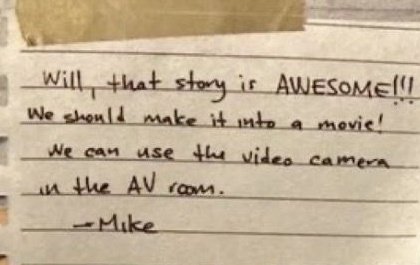 Will, that story is AWESOME!!!
We should make it into a movie!
We can use the video camera
in the AV room.
—Mike